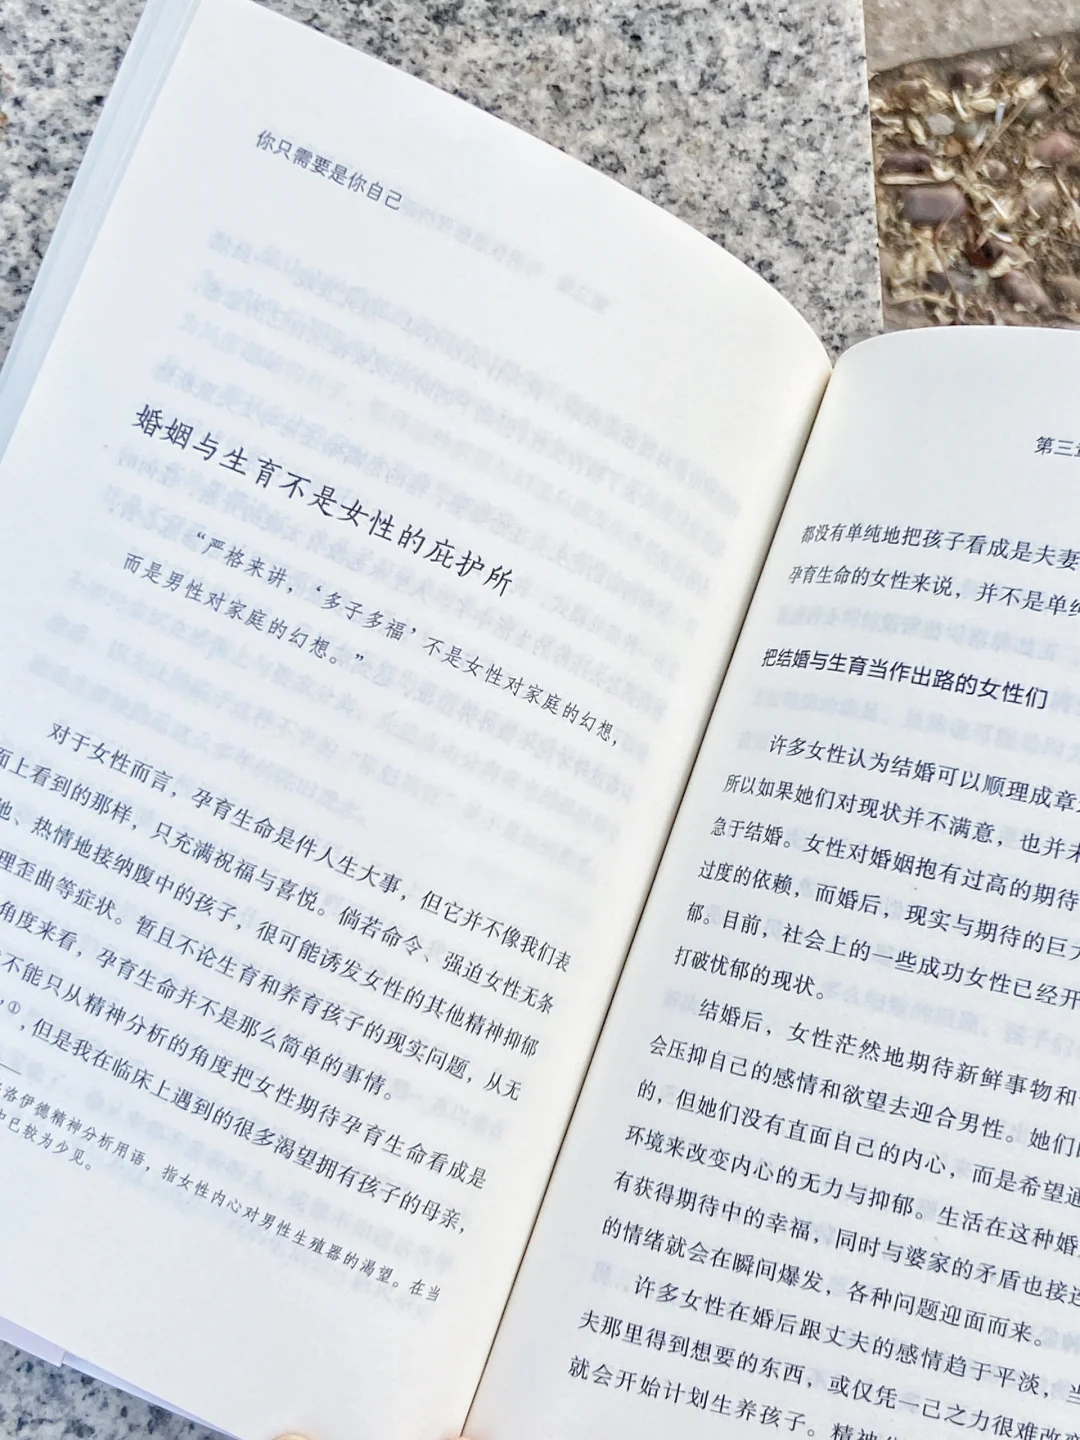 你只需要是你自己
婚姻与生育不是女性的庇护所
“严格来讲，‘多子多福’不是女性对家庭的幻想，
而是男性对家庭的幻想。”
对于女性而言，孕育生命是件人生大事，但它并不像我们表
面上看到的那样，只充满祝福与喜悦。倘若命令、强迫女性无条
地、热情地接纳腹中的孩子，很可能诱发女性的其他精神抑郁
理歪曲等症状。暂且不论生育和养育孩子的现实问题，从无
角度来看，孕育生命并不是那么简单的事情。
不能只从精神分析的角度把女性期待孕育生命看成是
，①，但是我在临床上遇到的很多渴望拥有孩子的母亲，
洛伊德精神分析用语，指女性内心对男性生殖器的渴望。在当
中已较为少见。
第三章
都没有单纯地把孩子看成是夫妻
孕育生命的女性来说，并不是单纯
把结婚与生育当作出路的女性们
许多女性认为结婚可以顺理成章
所以如果她们对现状并不满意，也并未
急于结婚。女性对婚姻抱有过高的期待
过度的依赖，而婚后，现实与期待的巨大
郁。目前，社会上的一些成功女性已经开
打破忧郁的现状。
结婚后，女性茫然地期待新鲜事物和
会压抑自己的感情和欲望去迎合男性。她们
的，但她们没有直面自己的内心，而是希望通
环境来改变内心的无力与抑郁。生活在这种婚
有获得期待中的幸福，同时与婆家的矛盾也接连
的情绪就会在瞬间爆发，各种问题迎面而来。
许多女性在婚后跟丈夫的感情趋于平淡，当
夫那里得到想要的东西，或仅凭一己之力很难改变
就会开始计划生养孩子。精神分